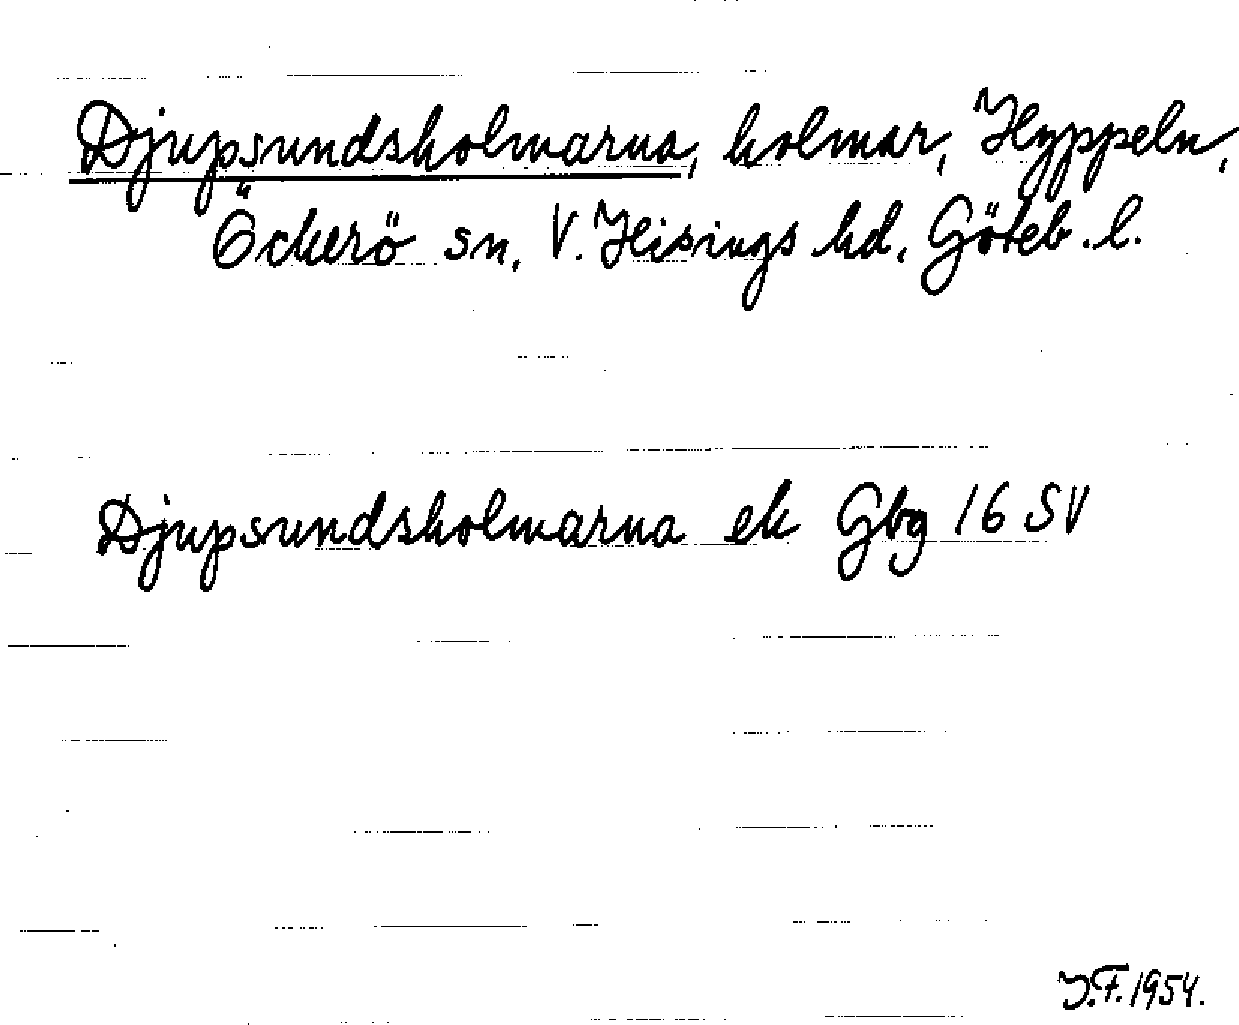 Djupsundsholmarna, holmar, Hyppeln,
Öckerö sn, V. Hisings hd, Göteb. l.
Djupsundsholmarna ek Gbg 16 SV
J.F. 1954.